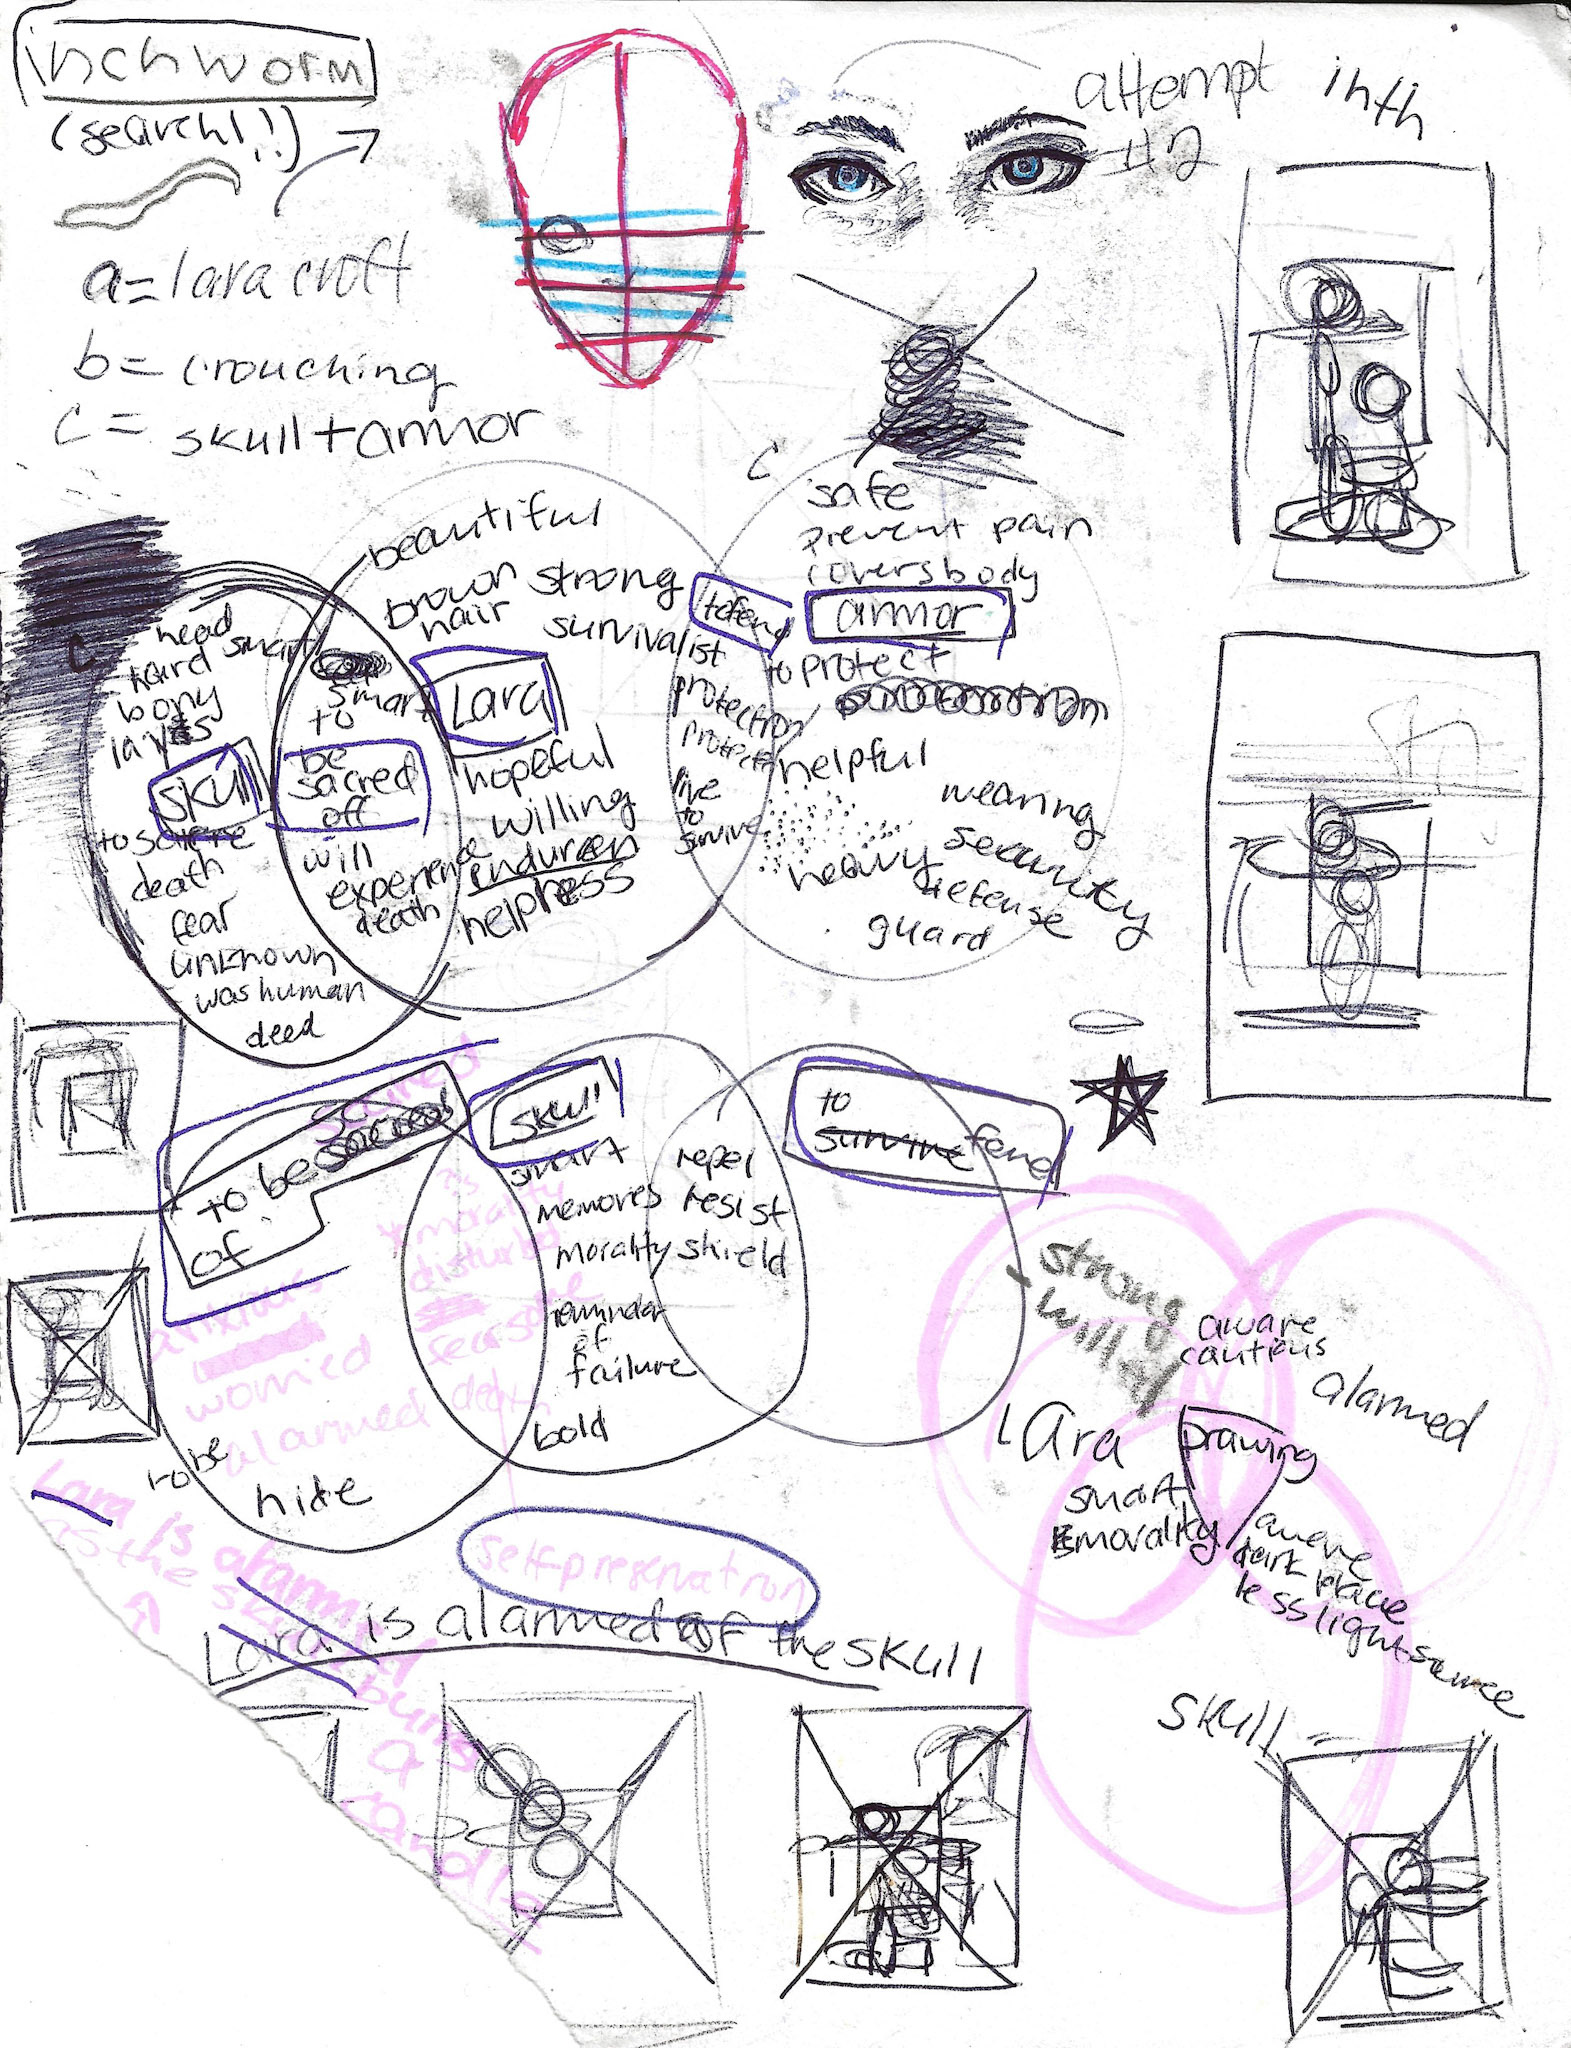 inchworm
(search!!)
a = lara croft
b = crouching
c = skull + armor
attempt
#2
inth
c
safe
prevent pain
covers body
armor
to protect
helpful
wearing
security
heavy
defense
guard
to fend
protection
protect
live
to
survive
beautiful
brown
hair
strong
survivalist
Lara
hopeful
willing
helpness
smart
to
be
sacred
off
will
experience
death
c
head
hard smart
bony
skull
death
fear
unknown
was human
deed
scared
to be
of
skull
smart
memories
morality
reminder
of
failure
bold
repel
resist
shield
to
survive fend
anxious
worried
alarmed
morality
disturbed
fearsome
death
to be
hide
self-preservation
Lara is alarmed
as the skull
burns
a
candle
Lara is alarmed of the skull
strong
willed
aware
cautious
alarmed
Lara
drawing
smart
morality
dark place
less light source
skull